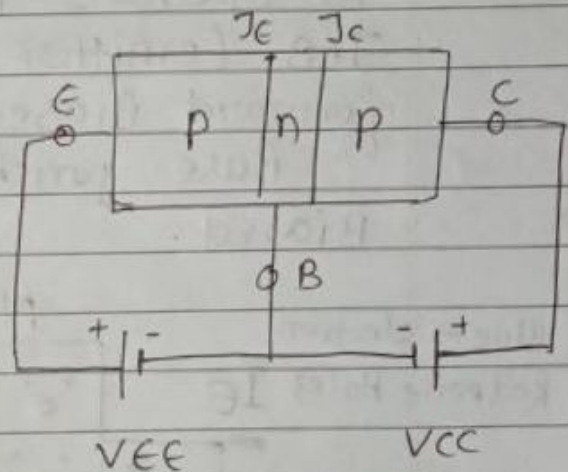 JE JC
E P n P C
B
+ - - +
VEE VCC